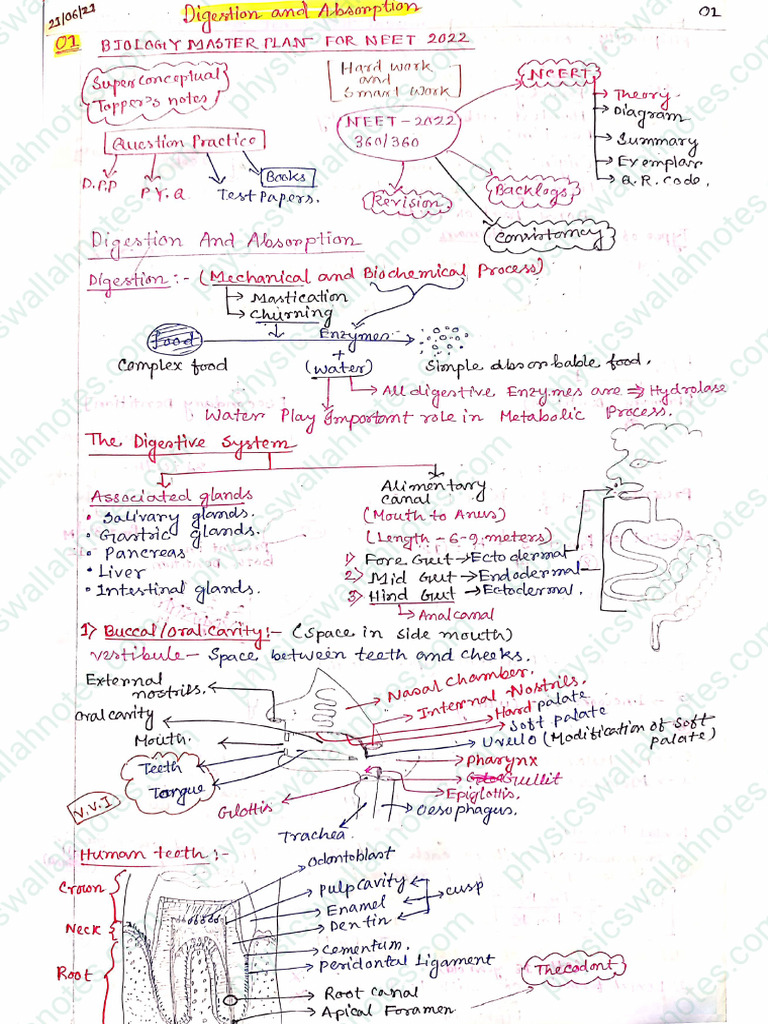 21/06/21
Digestion and Absorption
01
01 BIOLOGY MASTER PLAN FOR NEET 2022
Superconceptual
Topper's notes
Hard work
and
Smart Work
NCERT
Theory
Diagram
Summary
Exemplar
Q.R. Code.
NEET-2022
360/360
Question Practice
D.P.P
P.Y.Q
Test Papers.
Books
Revision
Backlogs
Consistancy
Digestion And Absorption
Digestion :- (Mechanical and Biochemical Process)
Mastication
Churning
Food
Enzymes
+
(water)
Complex food
Simple absorbable food.
All digestive Enzymes are ⇒ Hydrolase
Water Play important role in Metabolic Process.
The Digestive System
Associated glands
• Salivary glands.
• Gastric glands.
• Pancreas
• Liver
• Intestinal glands.
Alimentary
canal
(Mouth to Anus)
(Length - 6-9 meters)
1) Fore Gut → Ectodermal
2) Mid Gut → Endodermal
3) Hind Gut → Ectodermal.
Anal canal
1) Buccal/Oral cavity:- (Space in side mouth)
Vestibule - Space between teeth and cheeks.
External
nostrils.
Oral cavity
Mouth.
Teeth
Tongue
V.V.I
Glottis
Trachea
Nasal Chamber.
Internal Nostrils.
Hard palate
Soft palate
Uvello (Modification of Soft
palate)
Pharynx
Gullit
Epiglottis.
Oesophagus.
Human teeth :-
Crown
Neck
Root
Odontoblast
Pulp cavity
Enamel
Dentin
cusp
Cementum.
Peridontal Ligament
Root canal
Apical Foramen
Thecodont
physicswallahnotes.com